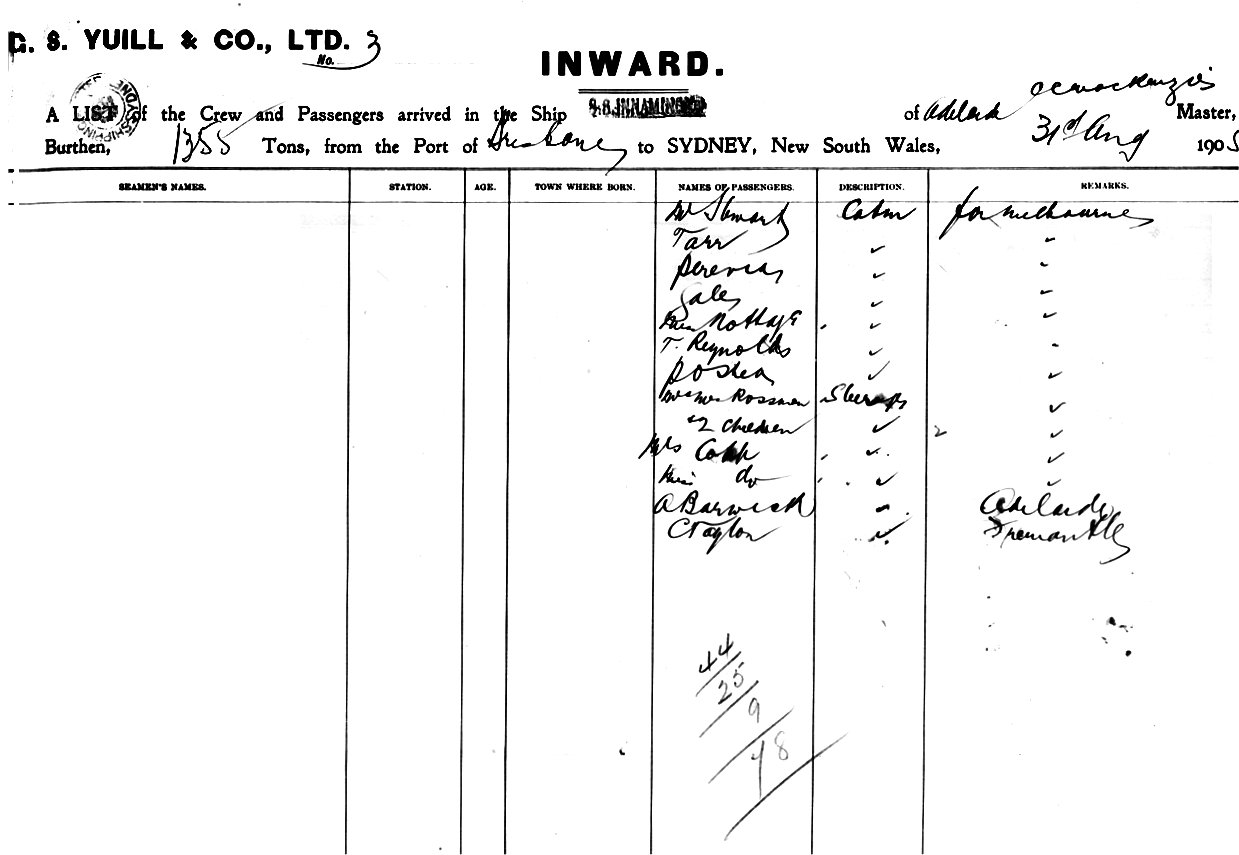 G. S. YUILL & CO., LTD. 3
No.
INWARD.
A LIST of the Crew and Passengers arrived in the Ship S.S. INNAMINCKA of Adelaide Master,
Burthen, 1355 Tons, from the Port of Brisbane to SYDNEY, New South Wales, 31st Aug 1905
SEAMEN'S NAMES. STATION. AGE. TOWN WHERE BORN. NAMES OF PASSENGERS. DESCRIPTION. REMARKS.
Mr Stewart Cabin for Melbourne
Tarr ✓ "
✓ "
Gales ✓ "
Nottage ✓ "
T. Reynolds ✓ "
P O Shea ✓ ✓
Rossman Steerage ✓
"2 Children ✓ 2 ✓
Mrs Cobb ✓ ✓
Miss do ✓ ✓
A Barwick " Adelaide
C Taylor ✓ Fremantle
44
25
9
78